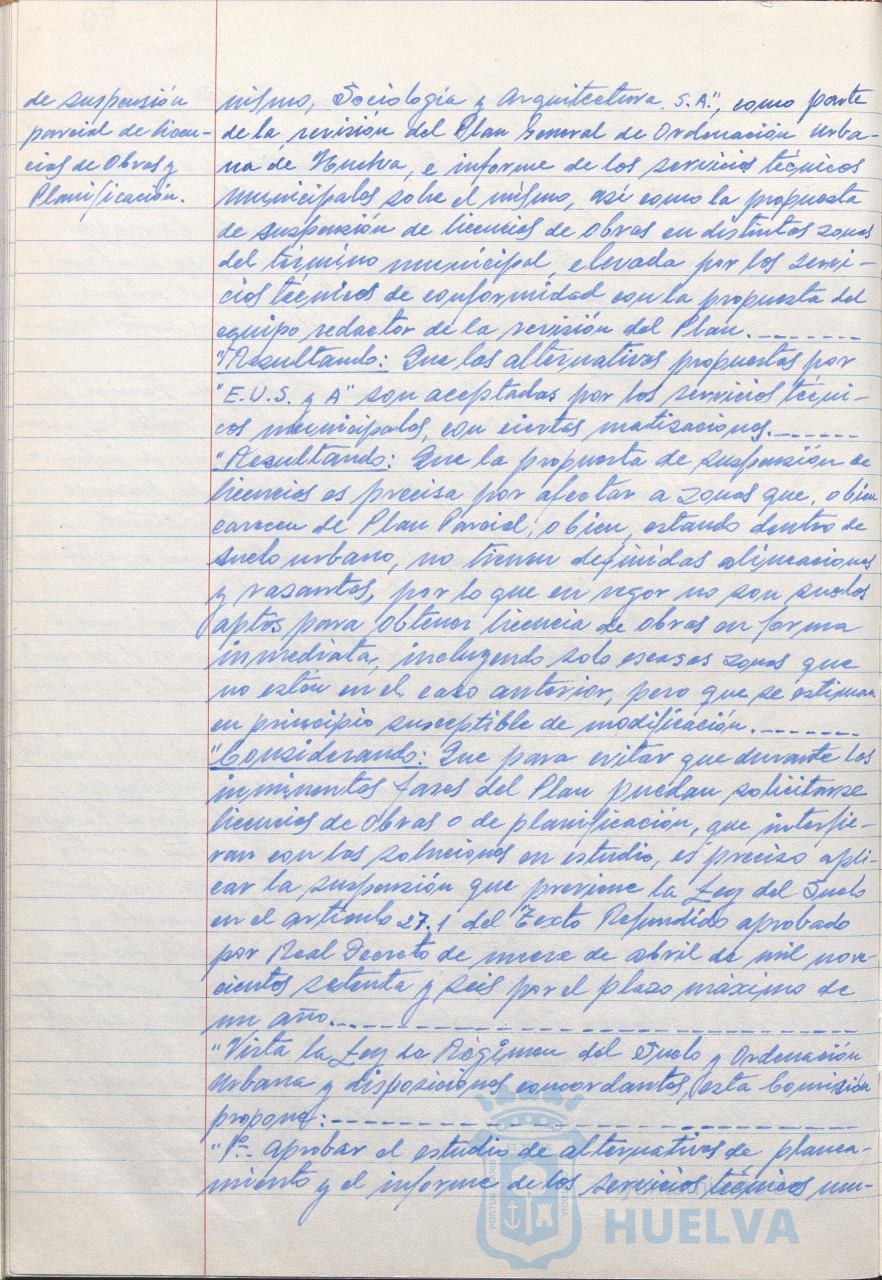 de suspensión
parcial de licen-
cias de Obras y
Planificación.
nismo, Sociología y Arquitectura, S.A.", como parte
de la revisión del Plan General de Ordenación Urba-
na de Huelva, e informe de los servicios técnicos
municipales sobre el mismo, así como la propuesta
de suspensión de licencias de obras en distintas zonas
del término municipal, elevada por los servi-
cios técnicos de conformidad con la propuesta del
equipo redactor de la revisión del Plan.--------
"Resultando: Que las alternativas propuestas por
"E.U.S. y A" son aceptadas por los servicios técni-
cos municipales, con ciertas matizaciones.------
"Resultando: Que la propuesta de suspensión de
licencias es precisa por afectar a zonas que, o bien
carecen de Plan Parcial; o bien, estando dentro de
suelo urbano, no tienen definidas alineaciones
y rasantes, por lo que en rigor no son suelos
aptos para obtener licencia de obras en forma
inmediata, incluyendo solo escasas zonas que
no están en el caso anterior, pero que se estiman
en principio susceptible de modificación.-------
"Considerando: Que para evitar que durante las
inminentes fases del Plan puedan solicitarse
licencias de Obras o de planificación, que interfie-
ran con las soluciones en estudio, es preciso apli-
car la suspensión que previene la Ley del Suelo
en el artículo 27.1 del Texto Refundido aprobado
por Real Decreto de nueve de abril de mil nove-
cientos setenta y seis por el plazo máximo de
un año.---------------------------------
"Vista la Ley de Régimen del Suelo y Ordenación
Urbana y disposiciones concordantes, esta Comisión
propone:---------------------------------
"1º.- Aprobar el estudio de alternativas de planea-
miento y el informe de los servicios técnicos mu-
HUELVA